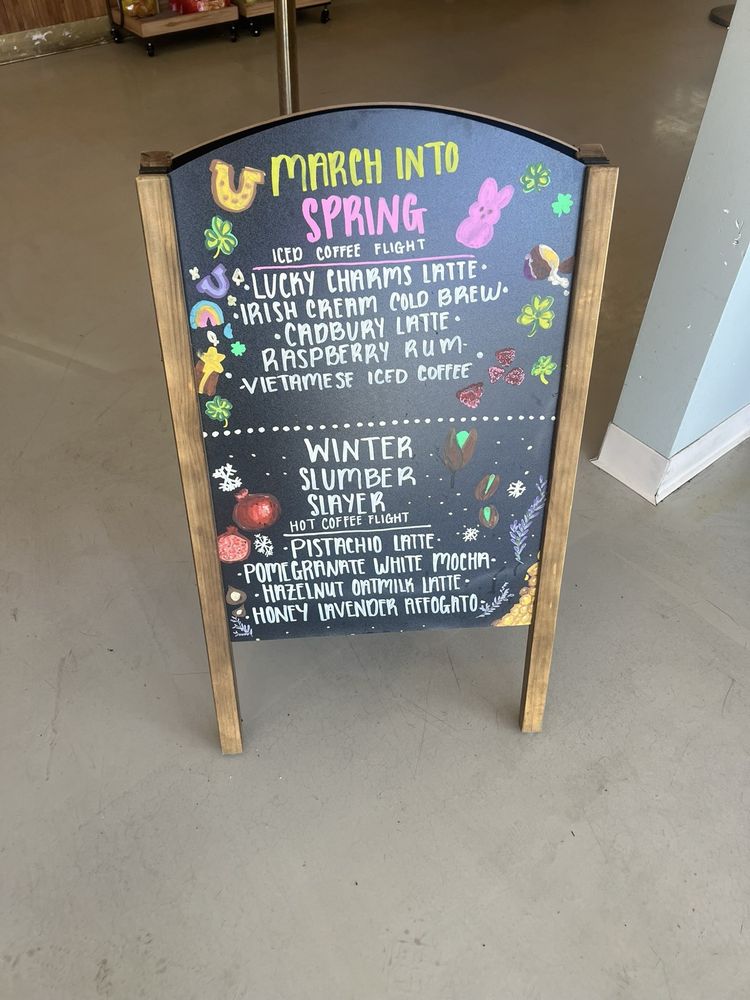 MARCH INTO
SPRING
ICED COFFEE FLIGHT
LUCKY CHARMS LATTE·
·IRISH CREAM COLD BREW·
·CADBURY LATTE·
RASPBERRY RUM·
·VIETAMESE ICED COFFEE·
WINTER
SLUMBER
SLAYER
HOT COFFEE FLIGHT
·PISTACHIO LATTE·
·POMEGRANATE WHITE MOCHA·
·HAZELNUT OATMILK LATTE·
·HONEY LAVENDER AFFOGATO·